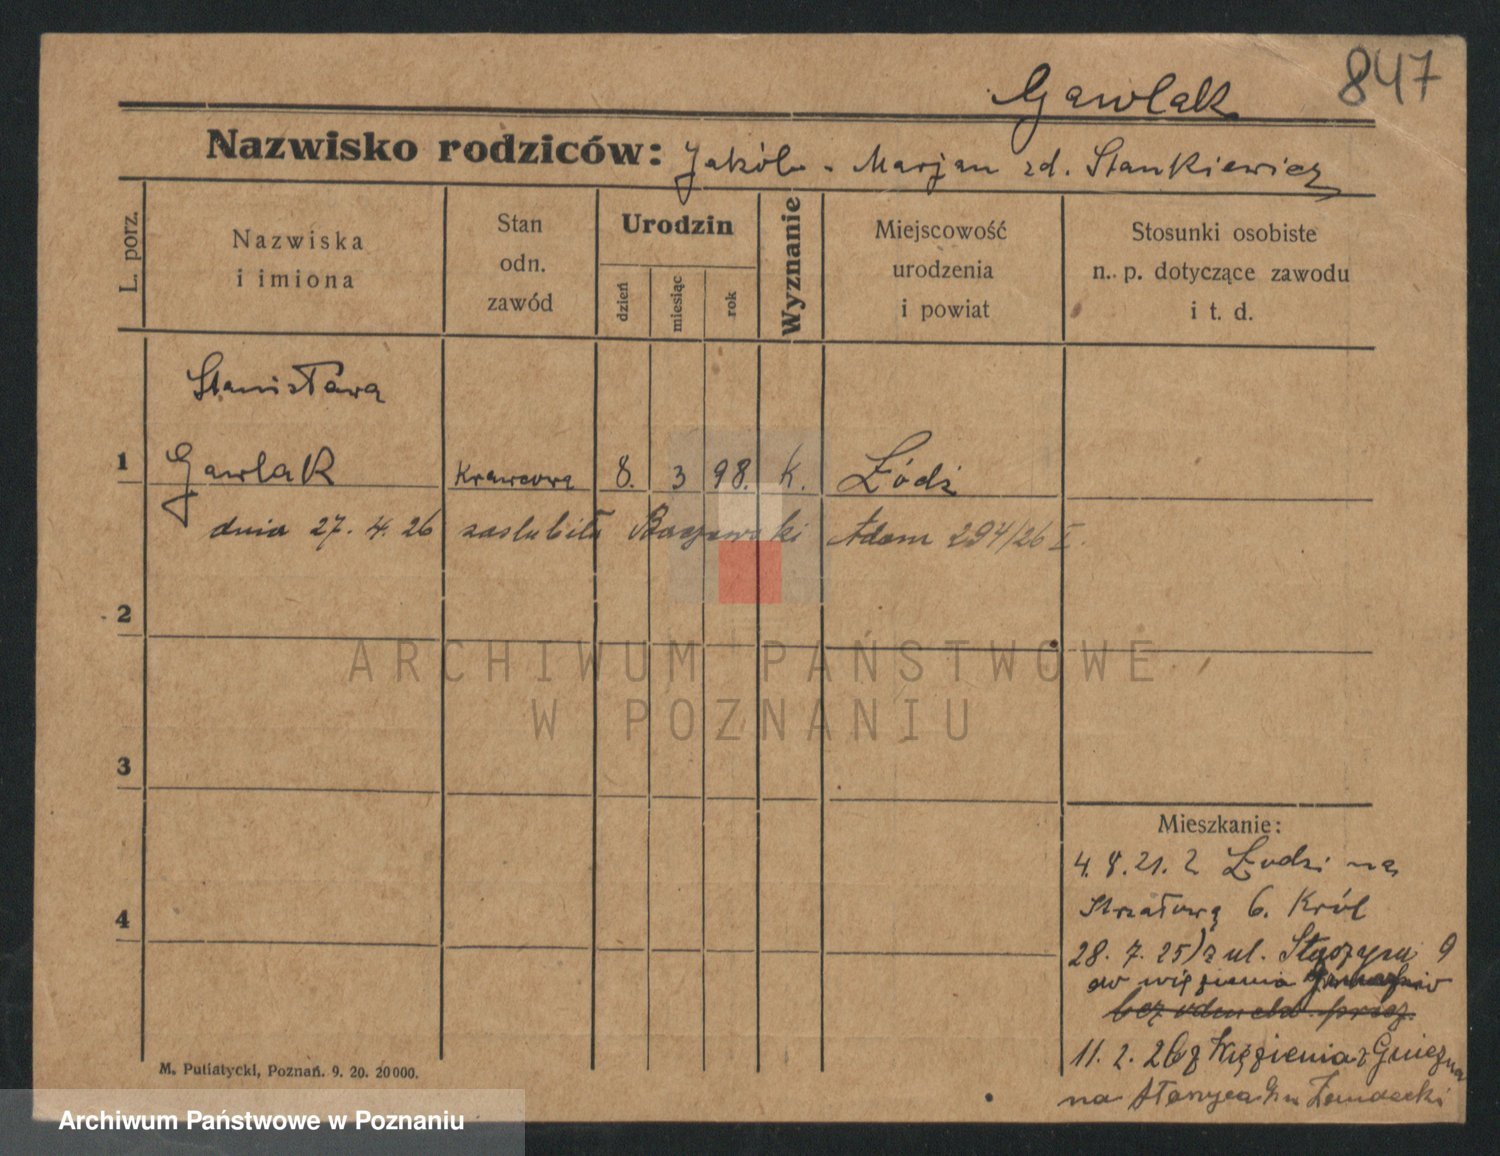 847
Gawlak
Nazwisko rodziców: Jakób - Marjan zd. Stankiewicz
L. porz.
Nazwiska
i imiona
Stan
odn.
zawód
Urodzin
dzień
miesiąc
rok
Wyznanie
Miejscowość
urodzenia
i powiat
Stosunki osobiste
n. p. dotyczące zawodu
i t. d.
Stanisława
1 Gawlak Krawcowa 8. 3 98. k. Łódź
dnia 27. 4. 26 zaslubiła Adam 294/26 I.
2
ARCHIWUM PAŃSTWOWE
W POZNANIU
3
4
Mieszkanie:
4. 8. 21. z Łodzi na
Strzałową 6. Król
28. 7. 25) z ul. 9
do więzienia
bez
11. 2. 26 z Więzienia z Gniezna
na
M. Putiatycki, Poznań. 9. 20. 20000.
Archiwum Państwowe w Poznaniu